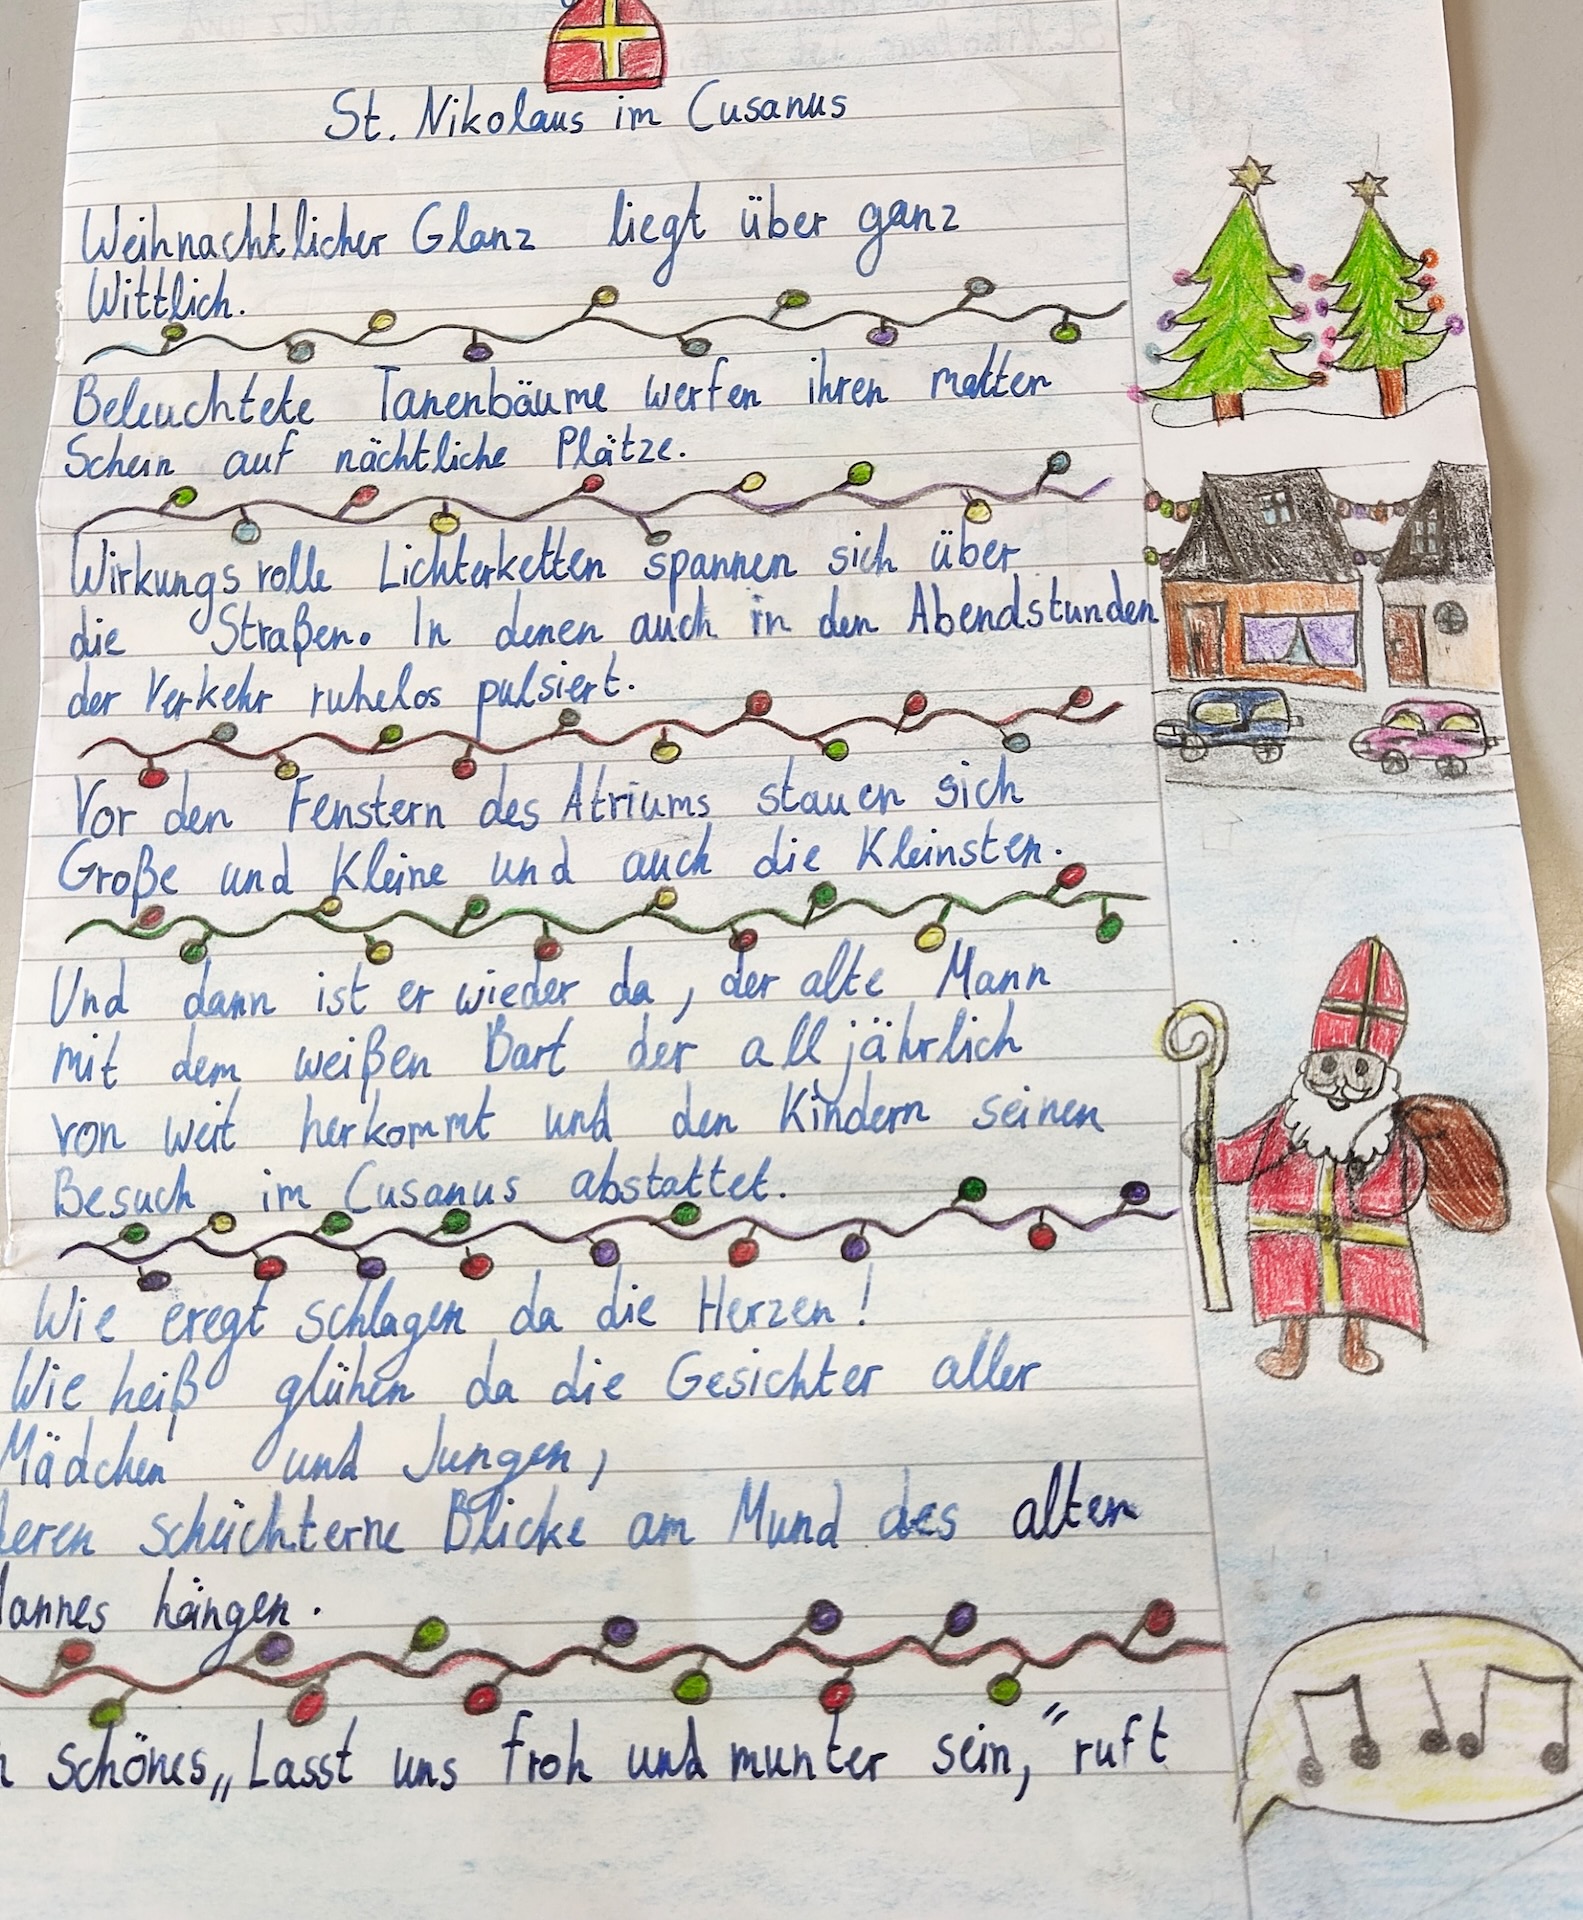 St. Nikolaus im Cusanus
Weihnachtlicher Glanz liegt über ganz
Wittlich.
Beleuchtete Tanenbäume werfen ihren matten
Schein auf nächtliche Plätze.
Wirkungsvolle Lichterketten spannen sich über
die Straßen. In denen auch in den Abendstunden
der Verkehr ruhelos pulsiert.
Vor den Fenstern des Atriums stauen sich
Große und Kleine und auch die Kleinsten.
Und dann ist er wieder da, der alte Mann
mit dem weißen Bart der alljährlich
von weit herkommt und den Kindern seinen
Besuch im Cusanus abstattet.
Wie eregt schlagen da die Herzen!
Wie heiß glühen da die Gesichter aller
Mädchen und Jungen,
deren schüchterne Blicke am Mund des alten
Mannes hängen.
schönes „Lasst uns froh und munter sein," ruft